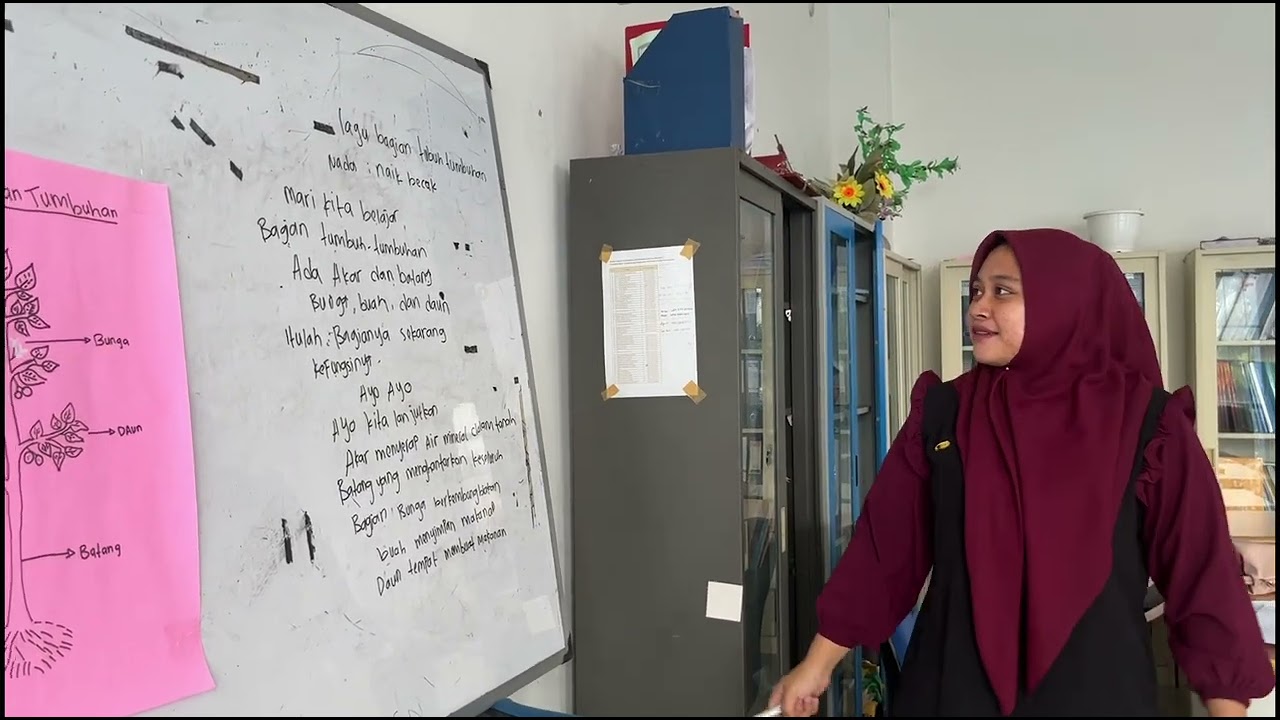 an Tumbuhan
Bunga
Daun
Batang
lagu bagian tubuh tumbuhan
Nada : naik becak
Mari kita belajar
Bagian tumbuh-tumbuhan
Ada Akar dan batang
Bunga buah, dan daun
Itulah Bagianya sekarang
kefungsinya.
Ayo Ayo
Ayo kita lanjutkan
Akar menyerap Air mineral didalam tanah
Batang yang menghantarkan keseluruh
Bagian Bunga berkembangbiakan
buah menyimpan makanan
Daun tempat membuat makanan